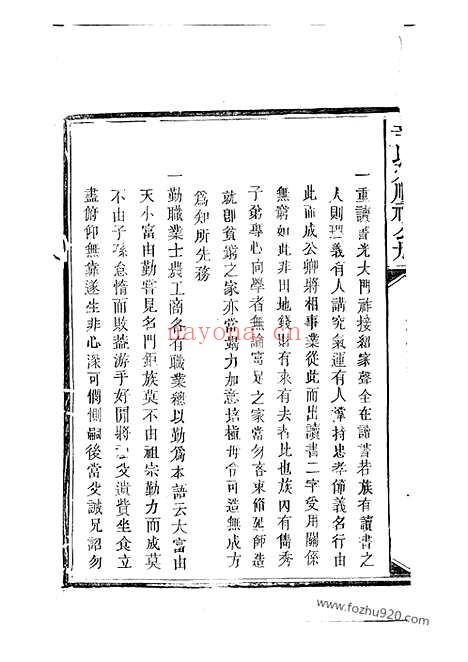 一重讀書光大門祚接紹家聲全在讀書若族有讀書之
人則理義有人講究氣運有人撐持忠孝節義名行由
此而成公卿將相事業從此而出讀書二字受用關係
無窮如此非田地錢財有來有去者比也族內有雋秀
子弟專心向學者無論富足之家當勿吝束脩延師造
就即貧窮之家亦當竭力加意培植毋令可造無成方
為知所先務
一勤職業士農工商各有職業總以勤為本語云大富由
天小富由勤嘗見名門鉅族莫不由祖宗勤力而成莫
不由子孫怠惰而敗蓋游手好閒將受遺貲坐食立
盡俯仰無靠遂生非心深可憫惻嗣後當父誡兄詔勿
nayona.cn
www.fozhu920.com